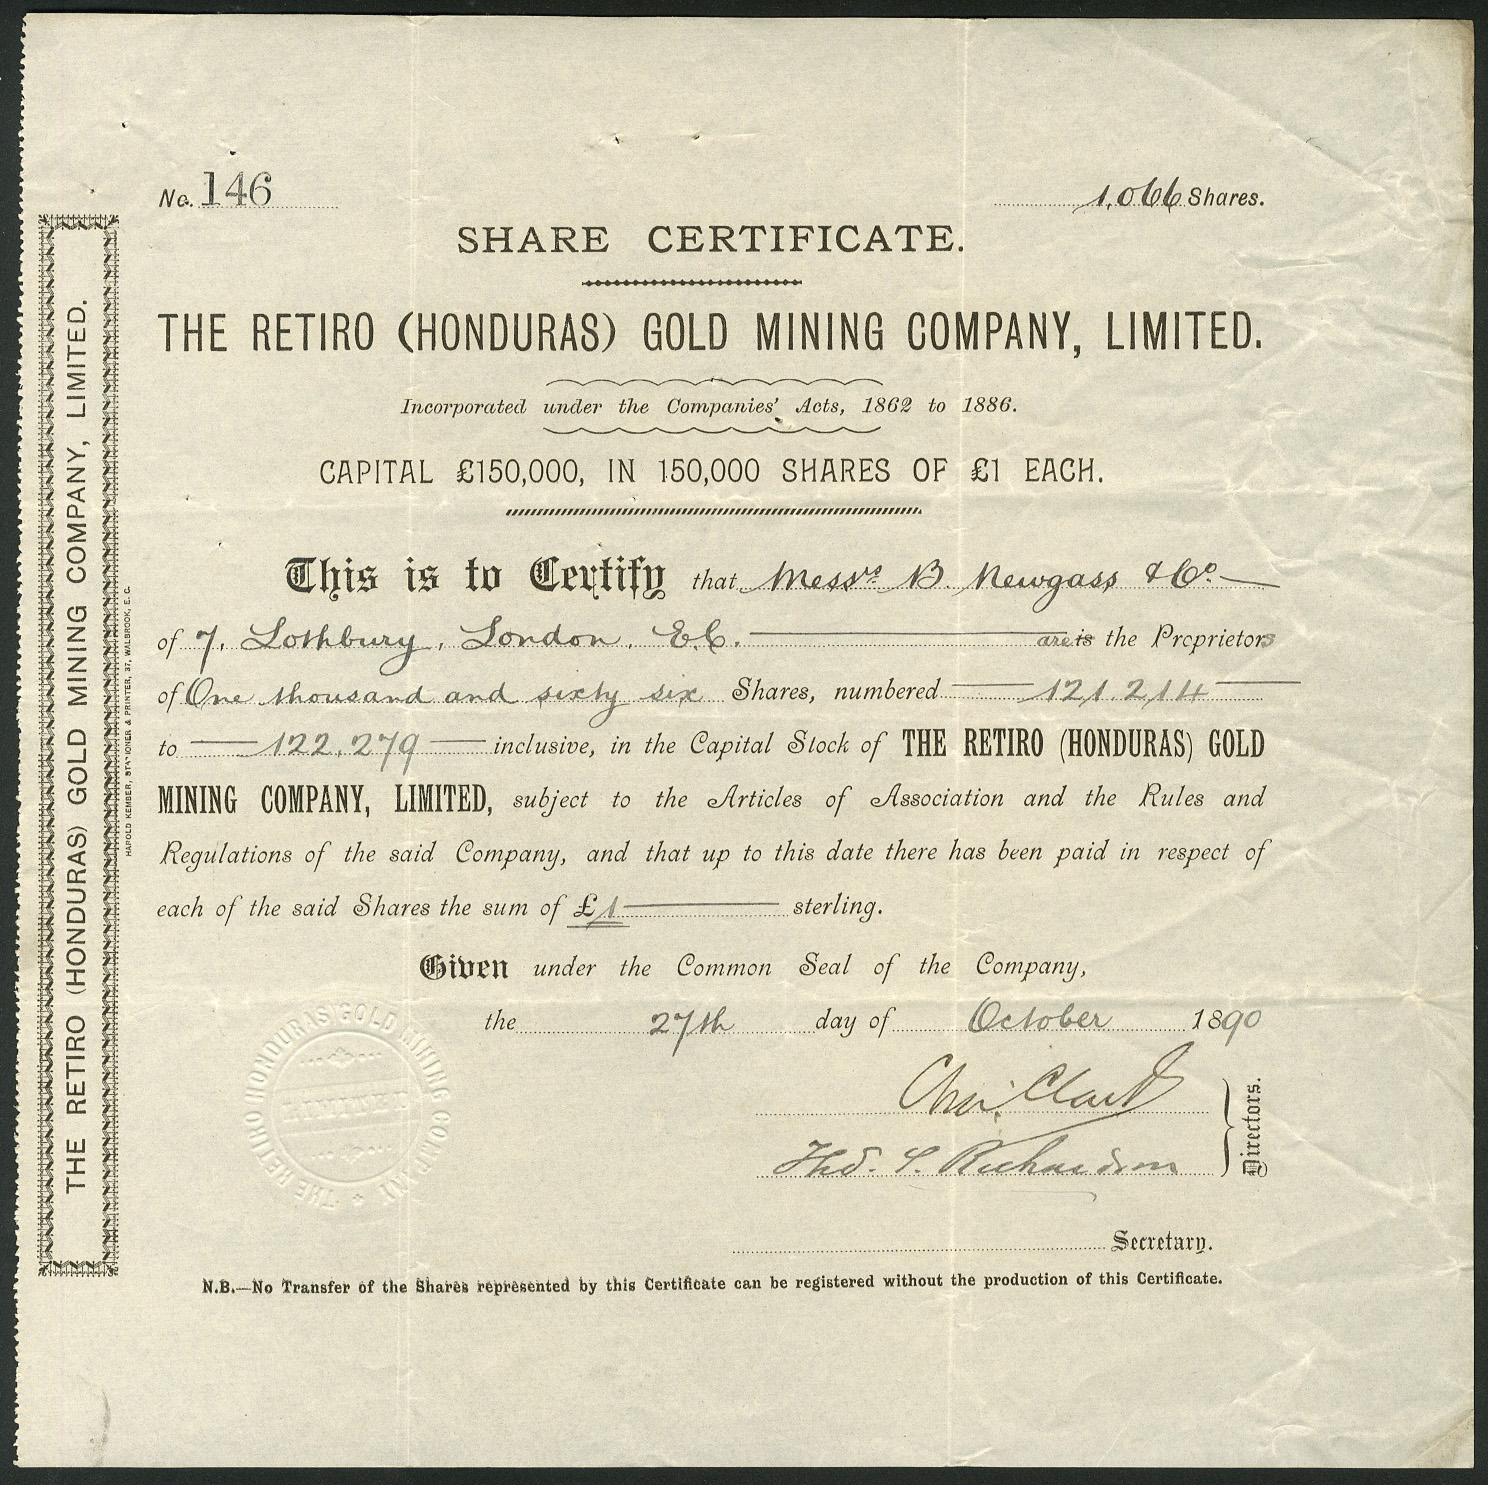 No. 146
1,066 Shares.
SHARE CERTIFICATE.
THE RETIRO (HONDURAS) GOLD MINING COMPANY, LIMITED.
Incorporated under the Companies' Acts, 1862 to 1886.
CAPITAL £150,000, IN 150,000 SHARES OF £1 EACH.
This is to Certify that Messrs B. Newgass & Co.
of 7, Lothbury, London, E.C. are is the Proprietors
of One thousand and sixty six Shares, numbered 121,214
to 122,279 inclusive, in the Capital Stock of THE RETIRO (HONDURAS) GOLD
MINING COMPANY, LIMITED, subject to the Articles of Association and the Rules and
Regulations of the said Company, and that up to this date there has been paid in respect of
each of the said Shares the sum of £1 sterling.
Given under the Common Seal of the Company,
the 27th day of October 1890
Chas. Clark
Thos. S. Richardson
Directors.
Secretary.
N.B.—No Transfer of the Shares represented by this Certificate can be registered without the production of this Certificate.
THE RETIRO (HONDURAS) GOLD MINING COMPANY, LIMITED.
HAROLD KEMBER, STATIONER & PRINTER, 37, WALBROOK, E.C.
THE RETIRO HONDURAS GOLD MINING COMPANY
LIMITED